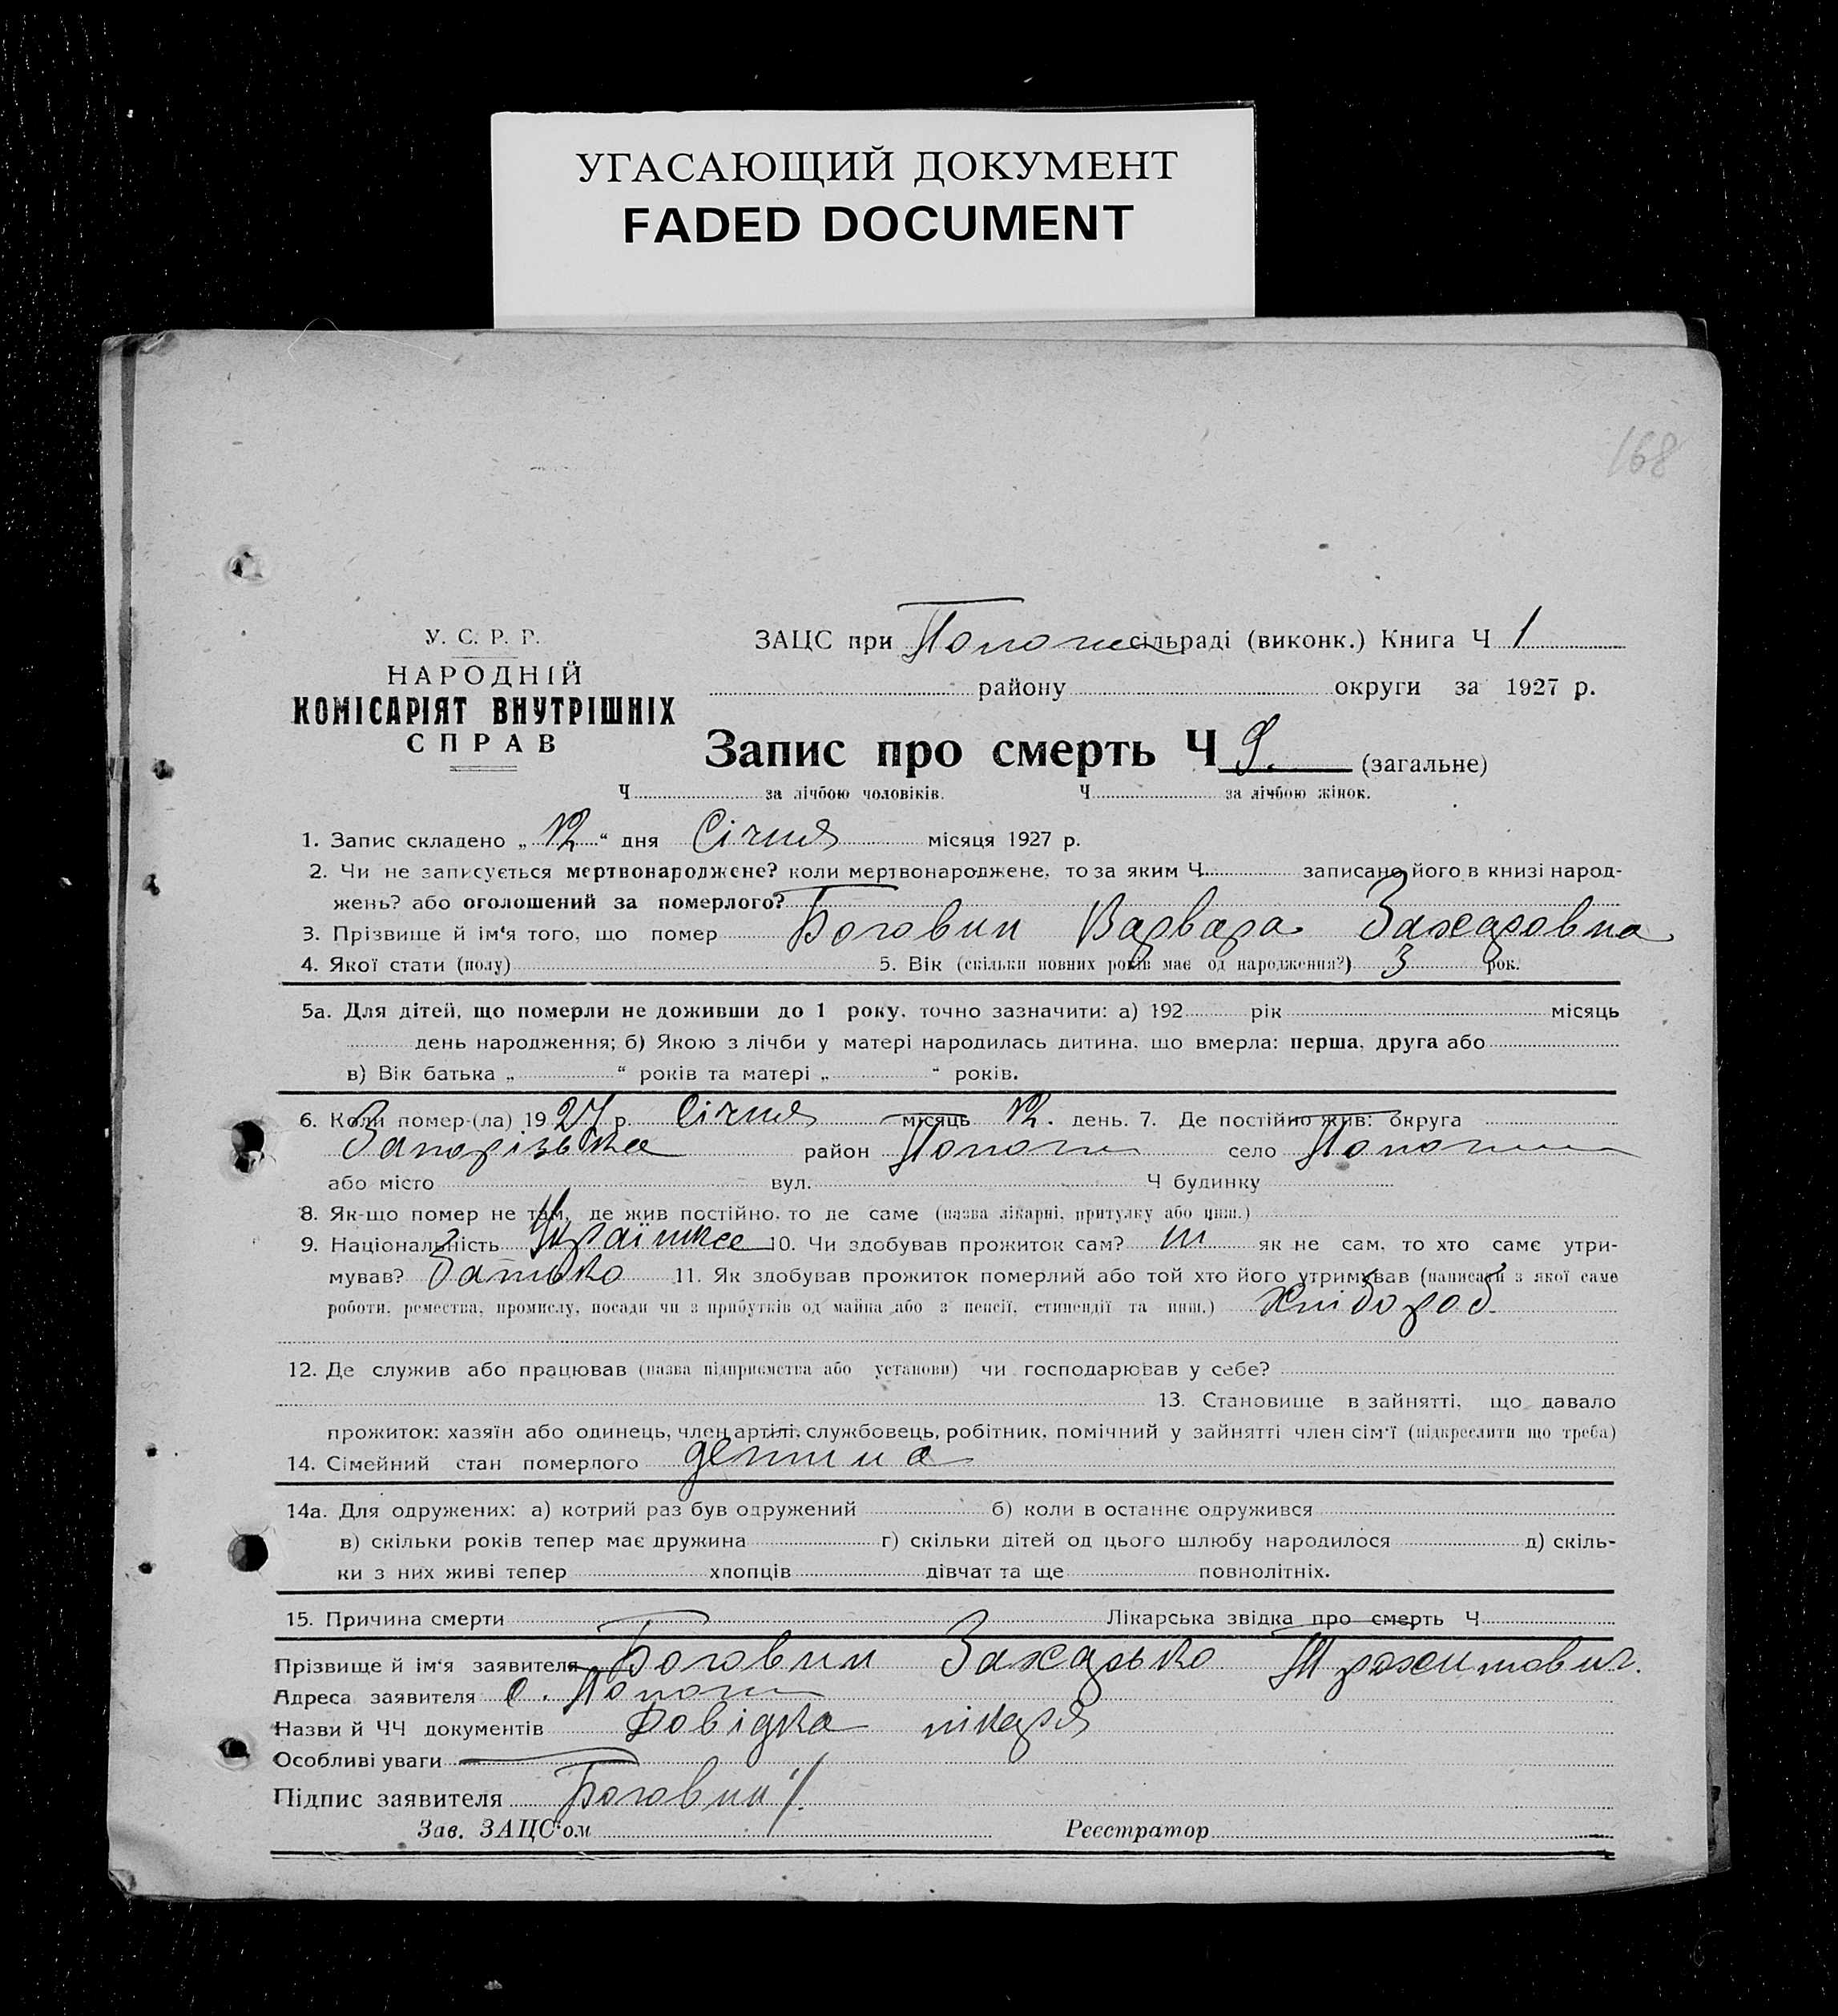 УГАСАЮЩИЙ ДОКУМЕНТ
FADED DOCUMENT
168
У. С. Р. Р.
НАРОДНІЙ
КОМІСАРІЯТ ВНУТРІШНІХ
СПРАВ
ЗАЦС при Пологи сільраді (виконк.) Книга Ч 1
району округи за 1927 р.
Запис про смерть Ч 9. (загальне)
Ч за лічбою чоловіків. Ч за лічбою жінок.
1. Запис складено „ 12 “ дня Січня місяця 1927 р.
2. Чи не записується мертвонароджене? коли мертвонароджене, то за яким Ч записано його в книзі народ-
жень? або оголошений за померлого?
3. Прізвище й ім‘я того, що помер Боговин Варвара Захаровна
4. Якої стати (полу) 5. Вік (скільки повних років має од народження?) 3 рок.
5а. Для дітей, що померли не доживши до 1 року, точно зазначити: а) 192 рік місяць
день народження; б) Якою з лічби у матері народилась дитина, що вмерла: перша, друга або
в) Вік батька „ “ років та матері „ “ років.
6. Коли помер-(ла) 1927 р. Січня місяць 12. день. 7. Де постійно жив: округа
Запорізька район Пологи село Пологи
або місто вул. Ч будинку
8. Як-що помер не там, де жив постійно, то де саме (назва лікарні, притулку або инш.)
9. Національність Українка 10. Чи здобував прожиток сам? ні як не сам, то хто саме утри-
мував? батько 11. Як здобував прожиток померлий або той хто його утримував (написати з якої саме
роботи, ремества, промислу, посади чи з прибутків од майна або з пенсії, стипендії та инш.) Хлібороб.
12. Де служив або працював (назва підприємства або установи) чи господарював у себе?
13. Становище в зайнятті, що давало
прожиток: хазяїн або одинець, член артілі, службовець, робітник, помічний у зайнятті член сім‘ї (підкреслити що треба)
14. Сімейний стан померлого дитина
14а. Для одружених: а) котрий раз був одружений б) коли в останнє одружився
в) скільки років тепер має дружина г) скільки дітей од цього шлюбу народилося д) скіль-
ки з них живі тепер хлопців дівчат та ще повнолітніх.
15. Причина смерти Лікарська звідка про смерть Ч
Прізвище й ім‘я заявителя Боговин Захарько
Адреса заявителя с. Пологи
Назви й ЧЧ документів Довідка лікаря
Особливі уваги
Підпис заявителя Боговин
Зав. ЗАЦС‘ом Реєстратор